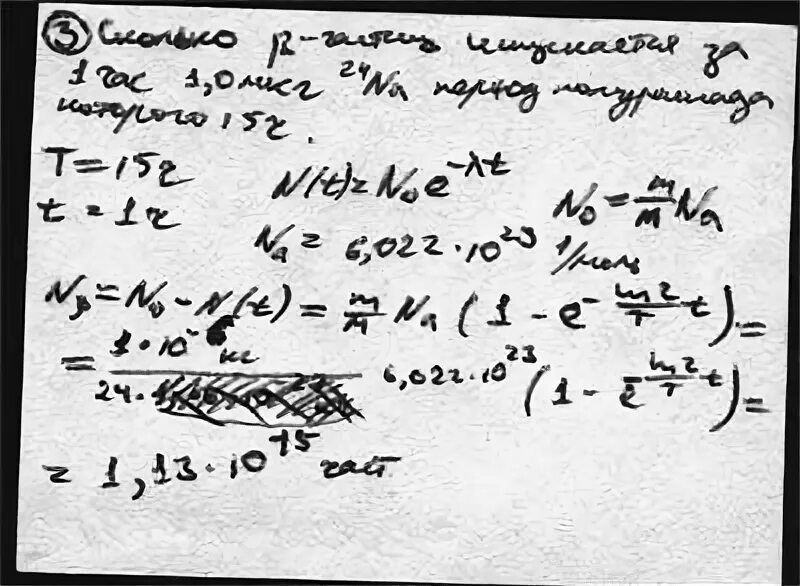 ③ Сколько β-частиц испускается за
1 час 1,0 мкг ²⁴Na период полураспада
которого 15ч.
T = 15ч
N(t) = N₀e^{-λt}
t = 1ч
N₀ = m/M Nₐ
Nₐ = 6,022·10²³ 1/моль
Nβ = N₀ - N(t) = m/M Nₐ (1 - e^{-ln2/T t}) =
= 1·10⁻⁶ кг / 24 · 6,022·10²³ (1 - e^{-ln2/T t}) =
= 1,13·10⁺¹⁵ част